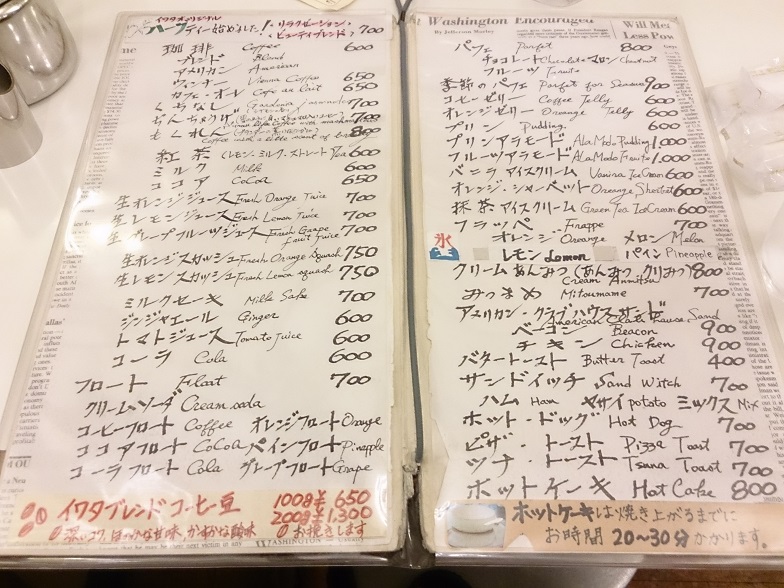 イワタオリジナル
ハーブティー始めました! リラクゼーション・ビューティブレンド 700
珈琲 Coffee 600
ブレンド Blend
アメリカン American
ウィンナー Vienna Coffee 650
カフェ・オ・レ Cafe au lait 650
くちなし 700
もくれん 800
紅茶 (レモン・ミルク・ストレート) Tea 600
ミルク Milk 600
ココア CoCoa 650
生オレンジジュース Fresh Orange Juice 700
生レモンジュース Fresh Lemon Juice 700
生グレープフルーツジュース Fresh Grape fruit Juice 700
生オレンジスカッシュ Fresh Orange Squash 750
生レモンスカッシュ Fresh Lemon squash 750
ミルクセーキ Milk Sake 700
ジンジャエール Ginger 600
トマトジュース Tomato Juice 600
コーラ Cola 600
フロート Float 700
クリームソーダ Cream soda
コーヒーフロート Coffee オレンジフロート Orange
ココアフロート CoCoa パインフロート Pinapple
コーラフロート Cola グレープフロート Grape
イワタブレンドコーヒー豆 100g ¥650
200g ¥1,300
深いコク、ほのかな甘味、かすかな酸味 お挽きします
Washington Encouraged
By Jefferson Morley
Will Mer
Less Pow
パフェ Parfet 800
チョコレート Chocolate マロン Chestnut
フルーツ Fruits
季節のパフェ Parfet for Season 900
コーヒーゼリー Coffee Jelly 600
オレンジゼリー Orange Jelly 600
プリン Pudding 600
プリンアラモード ALa Mode Pudding 1,000
フルーツアラモード ALa Mode Fruits 1,000
バニラアイスクリーム Vanira Ice Cream 600
オレンジ・シャーベット Orange Sherbet 600
抹茶アイスクリーム Green Tea Ice Cream 600
フラッペ Frappe 700
氷 オレンジ Oreange メロン Melon
レモン Lemon パイン Pineapple
クリームあんみつ (あんみつ クリみつ) 800
Cream Anmitsu
みつまめ Mitsumame 700
アメリカン・クラブハウスサンド
American Club House Sand
ベーコン Beacon 900
チキン Chicken 900
バタートースト Butter Toast 400
サンドイッチ Sand Witch 700
ハム Ham ヤサイ potato ミックス Mix
ホット・ドッグ Hot Dog 700
ピザ・トースト Pizza Toast 700
ツナ・トースト Tsuna Toast 700
ホットケーキ Hot Cake 800
ホットケーキは焼き上がるまでに
お時間 20~30分かかります。